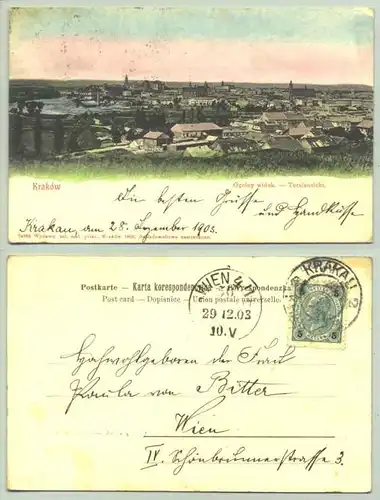 Kraków
Ogólny widok. — Totalansicht.
Die besten Grüsse
und Handküsse
Krakau, am 28. Dezember 1903.
Postkarte — Karta korespondencyjna — Korespondenzka
Post card — Dopisnice — Union postale universelle.
WIEN 4
29.12.03
10.V
KRAKAU 2
5 5
Hochwohlgeboren der Frau
Paula von Bitter
Wien
IV. Schönbrunnerstrasse 3.